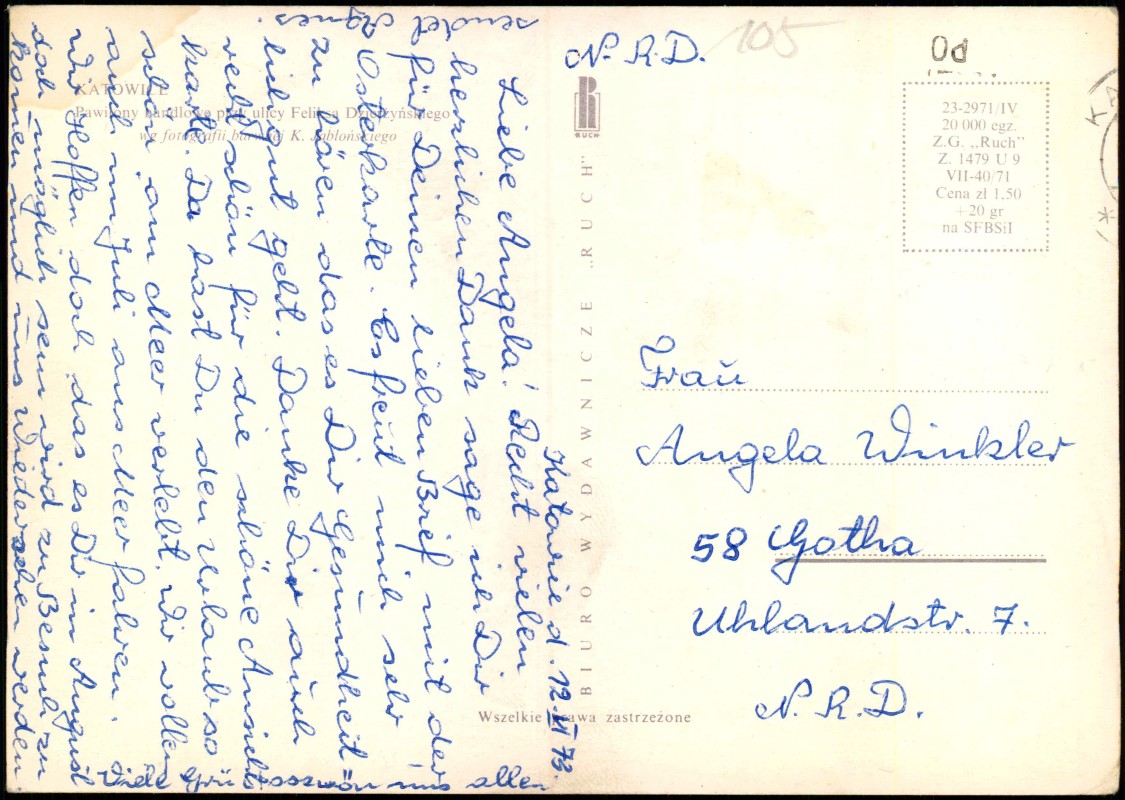 N. R. D.
105
KATOWICE
Pawilony handlowe przy ulicy Feliksa Dzierżyńskiego
wg fotografii barwnej K. Jabłońskiego
RUCH
23-2971/IV
20 000 egz.
Z.G. „Ruch"
Z. 1479 U 9
VII-40/71
Cena zł 1.50
+ 20 gr
na SFBSiI
BIURO WYDAWNICZE „RUCH"
Wszelkie prawa zastrzeżone
Frau
Angela Winkler
58 Gotha
Uhlandstr. 7.
N. R. D.
Katowice d. 12 VI 73.
Liebe Angela! Recht vielen
herzlichen Dank sage ich Dir
für Deinen lieben Brief mit der
Osterkarte. Es freut mich sehr
zu hören das es Dir Gesundheit
lich gut geht. Danke Dir auch
recht schön für die schöne Ansichts
karte. Da hast Du den Urlaub so
schön am Meer verlebt. Wir wollen
auch im Juli ans Meer fahren.
Wir hoffen doch das es Dir im August
doch möglich sein wird zu Besuch zu
komen und uns wiedersehen werden.
Viele Grüsse von uns allen
sendet Agnes